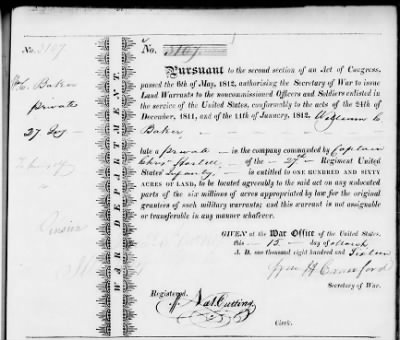 No. 3107
Wm C. Baker
private
27 Inf
WAR DEPARTMENT.
No. 3107
Pursuant to the second section of an Act of Congress,
passed the 6th of May, 1812, authorising the Secretary of War to issue
Land Warrants to the noncommissioned Officers and Soldiers enlisted in
the service of the United States, conformably to the acts of the 24th of
December, 1811, and of the 11th of January, 1812. William C
Baker
late a private in the company commanded by Captain
of the 27th Regiment United
States' Infantry is entitled to ONE HUNDRED AND SIXTY
ACRES OF LAND, to be located agreeably to the said act on any unlocated
parts of the six millions of acres appropriated by law for the original
grantees of such military warrants; and this warrant is not assignable
or transferable in any manner whatever.
GIVEN at the War Office of the United States,
this 15 day of March
A. D. one thousand eight hundred and Sixteen
Wm H Crawford
Secretary of War.
Registered,
Nat. Cutting
Clerk.